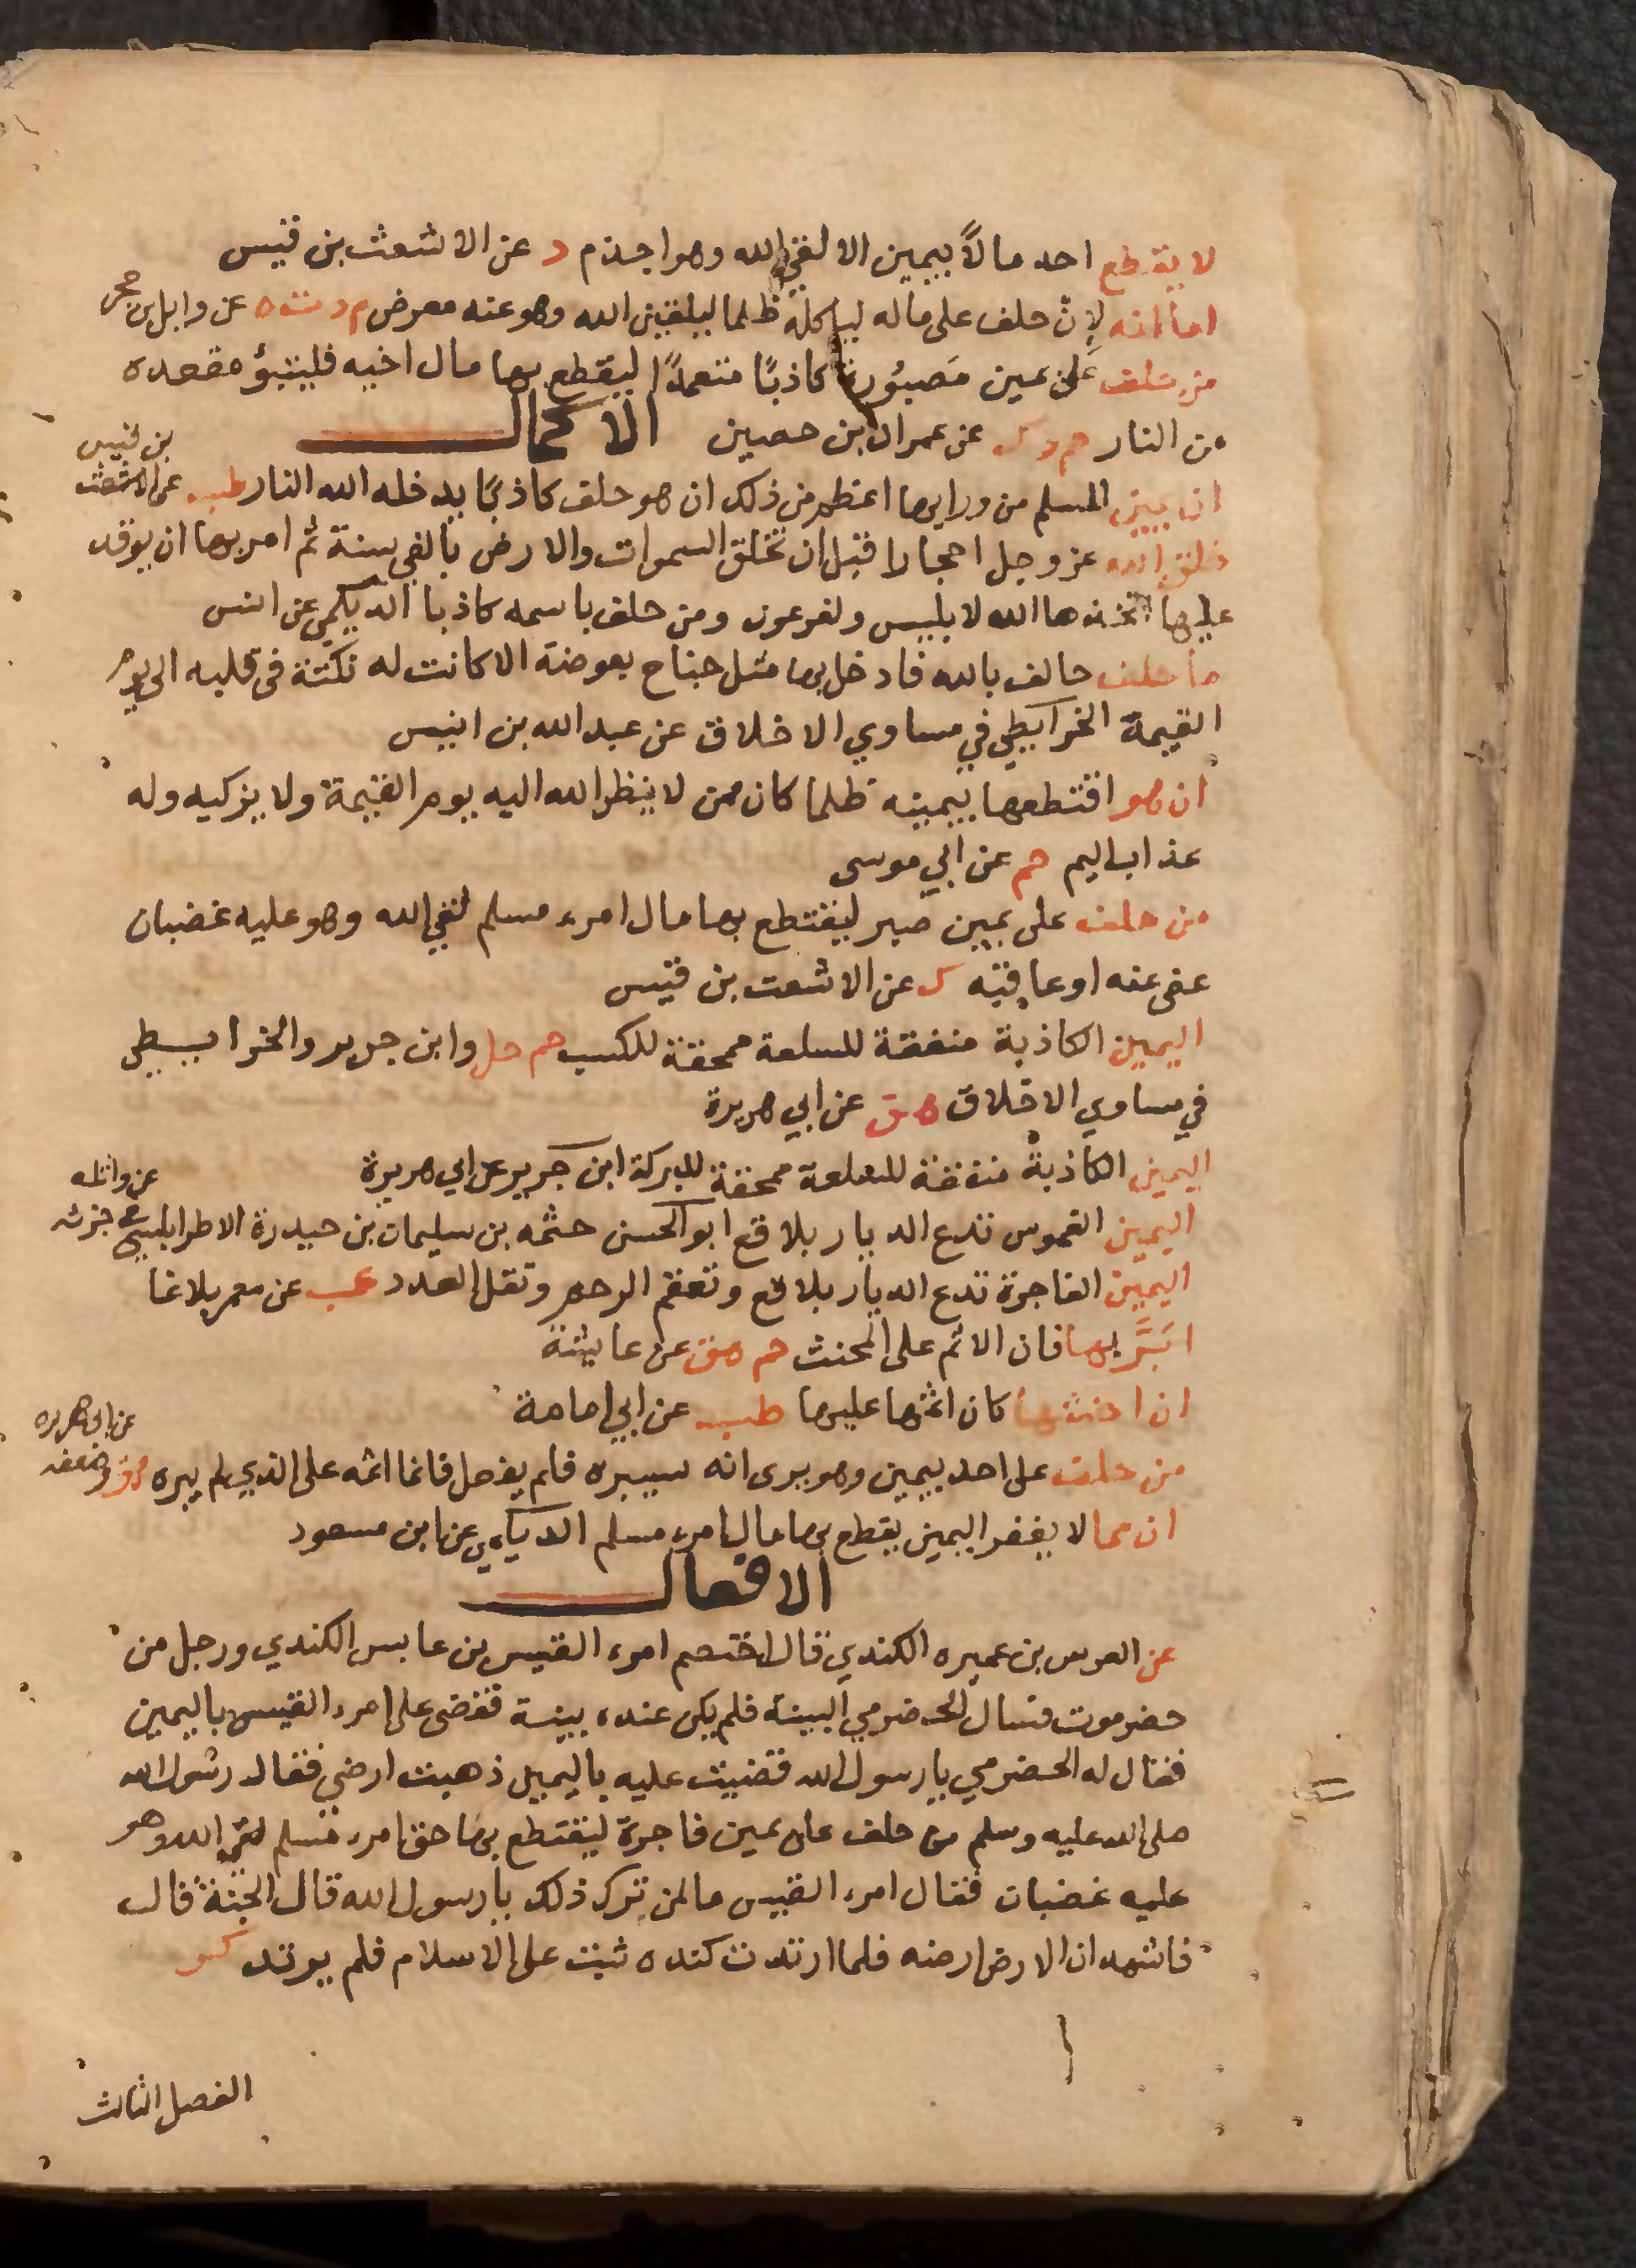 لا يقطع احد مالاً بيمين الا لقي الله وهو اجذم د عن الاشعث بن قيس
اما انه لان حلف على ماله لياكله ظلما ليلقين الله وهو عنه معرض م د ت ه عن وايل بن حجر
من حلف على يمين مَصبُورة كاذبًا متعمدًا ليقطع بها مال اخيه فليتبؤ مقعده
من النار حم د ك عن عمران بن حصين الاكمال
ان يمين المسلم من ورايها اعظم من ذلك ان هو حلف كاذبًا يدخله الله النار طب عن الاشعث بن قيس
خلق الله عز وجل احجارا قبل ان تخلق السموات والارض بالفي سنة ثم امر بها ان يوقد
عليها اتخذها الله لابليس ولفرعون ومن حلف باسمه كاذبا الديلمي عن انس
ما حلف حالف بالله فادخل بها مثل جناح بعوضة الا كانت له نكتة في قلبه الى يوم
القيمة الخرايطي في مساوي الاخلاق عن عبد الله بن انيس
ان هو اقتطعها بيمينه ظلما كان ممن لا ينظر الله اليه يوم القيمة ولا يزكيه وله
عذاب اليم حم عن ابي موسى
من حلف على يمين صبر ليقتطع بها مال امرء مسلم لقي الله وهو عليه غضبان
عفى عنه او عاقبه ك عن الاشعت بن قيس
اليمين الكاذبة منفقة للسلعة ممحقة للكسب حم حل وابن جرير والخرايطي
في مساوي الاخلاق هق عن ابي هريرة
اليمين الكاذبة منفقة للسلعة ممحقة للبركة ابن جرير عن ابي هريرة
اليمين الغموس تدع الديار بلاقع ابو الحسن خثمه بن سليمان بن حيدرة الاطرابلسي في جزئه عن واثله
اليمين الفاجرة تدع الديار بلاقع وتعقم الرحم وتقل العدد عب عن معمر بلاغا
ابَرَّ بها فان الاثم على المحنث حم هق عن عايشة
ان احنثتها كان اثمها عليها طب عن ابي امامة
من حلف على احد بيمين وهو يرى انه سيبره فلم يفعل فانما اثمه على الذي لم يبره هق وضعفه عن ابي هريره
ان مما لا يغفر اليمين يقطع بها مال امرء مسلم الديلمي عن ابن مسعود
الافعال
عن العرس بن عميره الكندي قال اختصم امرء القيس بن عابس الكندي ورجل من
حضرموت فسال الحضرمي البينة فلم يكن عنده بينة فقضى على امرء القيس باليمين
فقال له الحضرمي يا رسول الله قضيت عليه باليمين ذهبت ارضي فقال رسول الله
صلى الله عليه وسلم من حلف على يمين فاجرة ليقتطع بها حق امرء مسلم لقي الله وهو
عليه غضبان فقال امرء القيس ما لمن ترك ذلك يا رسول الله قال الجنة قال
فاشهد ان الارض ارضه فلما ارتدت كنده ثبت على الاسلام فلم يرتد كر
الفصل الثالث